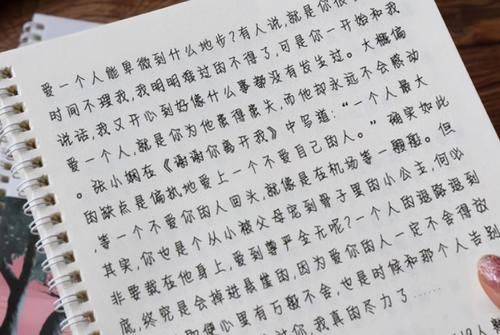 爱一个人能卑微到什么地步?有人说,就是你很
时间不理我,我明明难过的不得了,可是你一开始和我
说话,我又开心到好像什么事都没有发生过。大概偏
爱一个人,就是你为他患得患失,而他却永远不会感动
。张小娴在《谢谢你离开我》中写道:“一个人最大
的缺点是偏执地爱上一个不爱自己的人。”确实如此
,等一个不爱你的人回头,就像是在机场等一艘船。但
其实,你也是个从小被父母宠到骨子里的小公主,何必
非要栽在他身上,爱到尊严全无呢?一个人的退路退到
底,终究是会掉进悬崖的,因为爱你的人一定不会得寸
心里有万般不舍,也是时候和那个人告别
你,我真的尽力了……